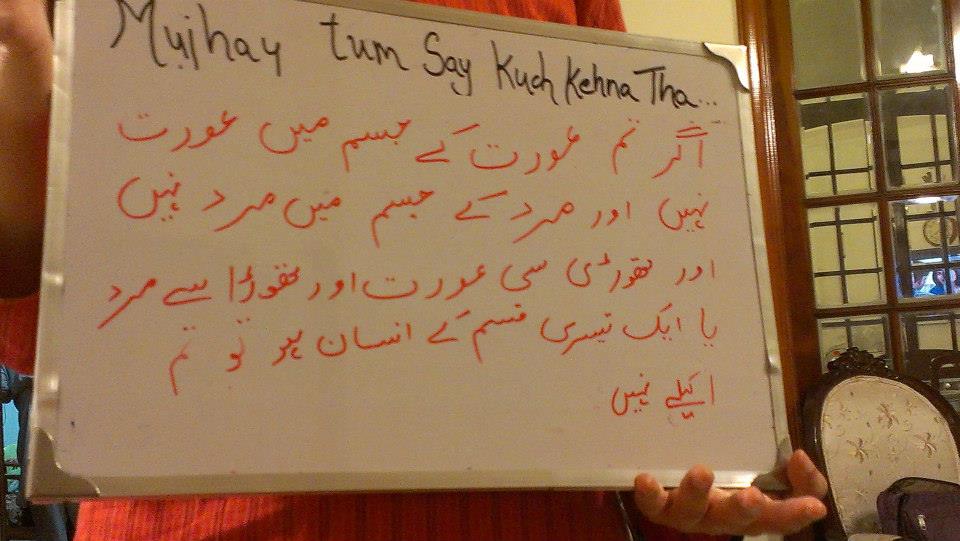 Mujhay tum Say Kuch Kehna Tha...
اگر تم عورت کے جسم میں عورت
نہیں اور مرد کے جسم میں مرد نہیں
اور تھوڑی سی عورت اور تھوڑا سے مرد
یا ایک تیسری قسم کے انسان ہو تو تم
اکیلے نہیں